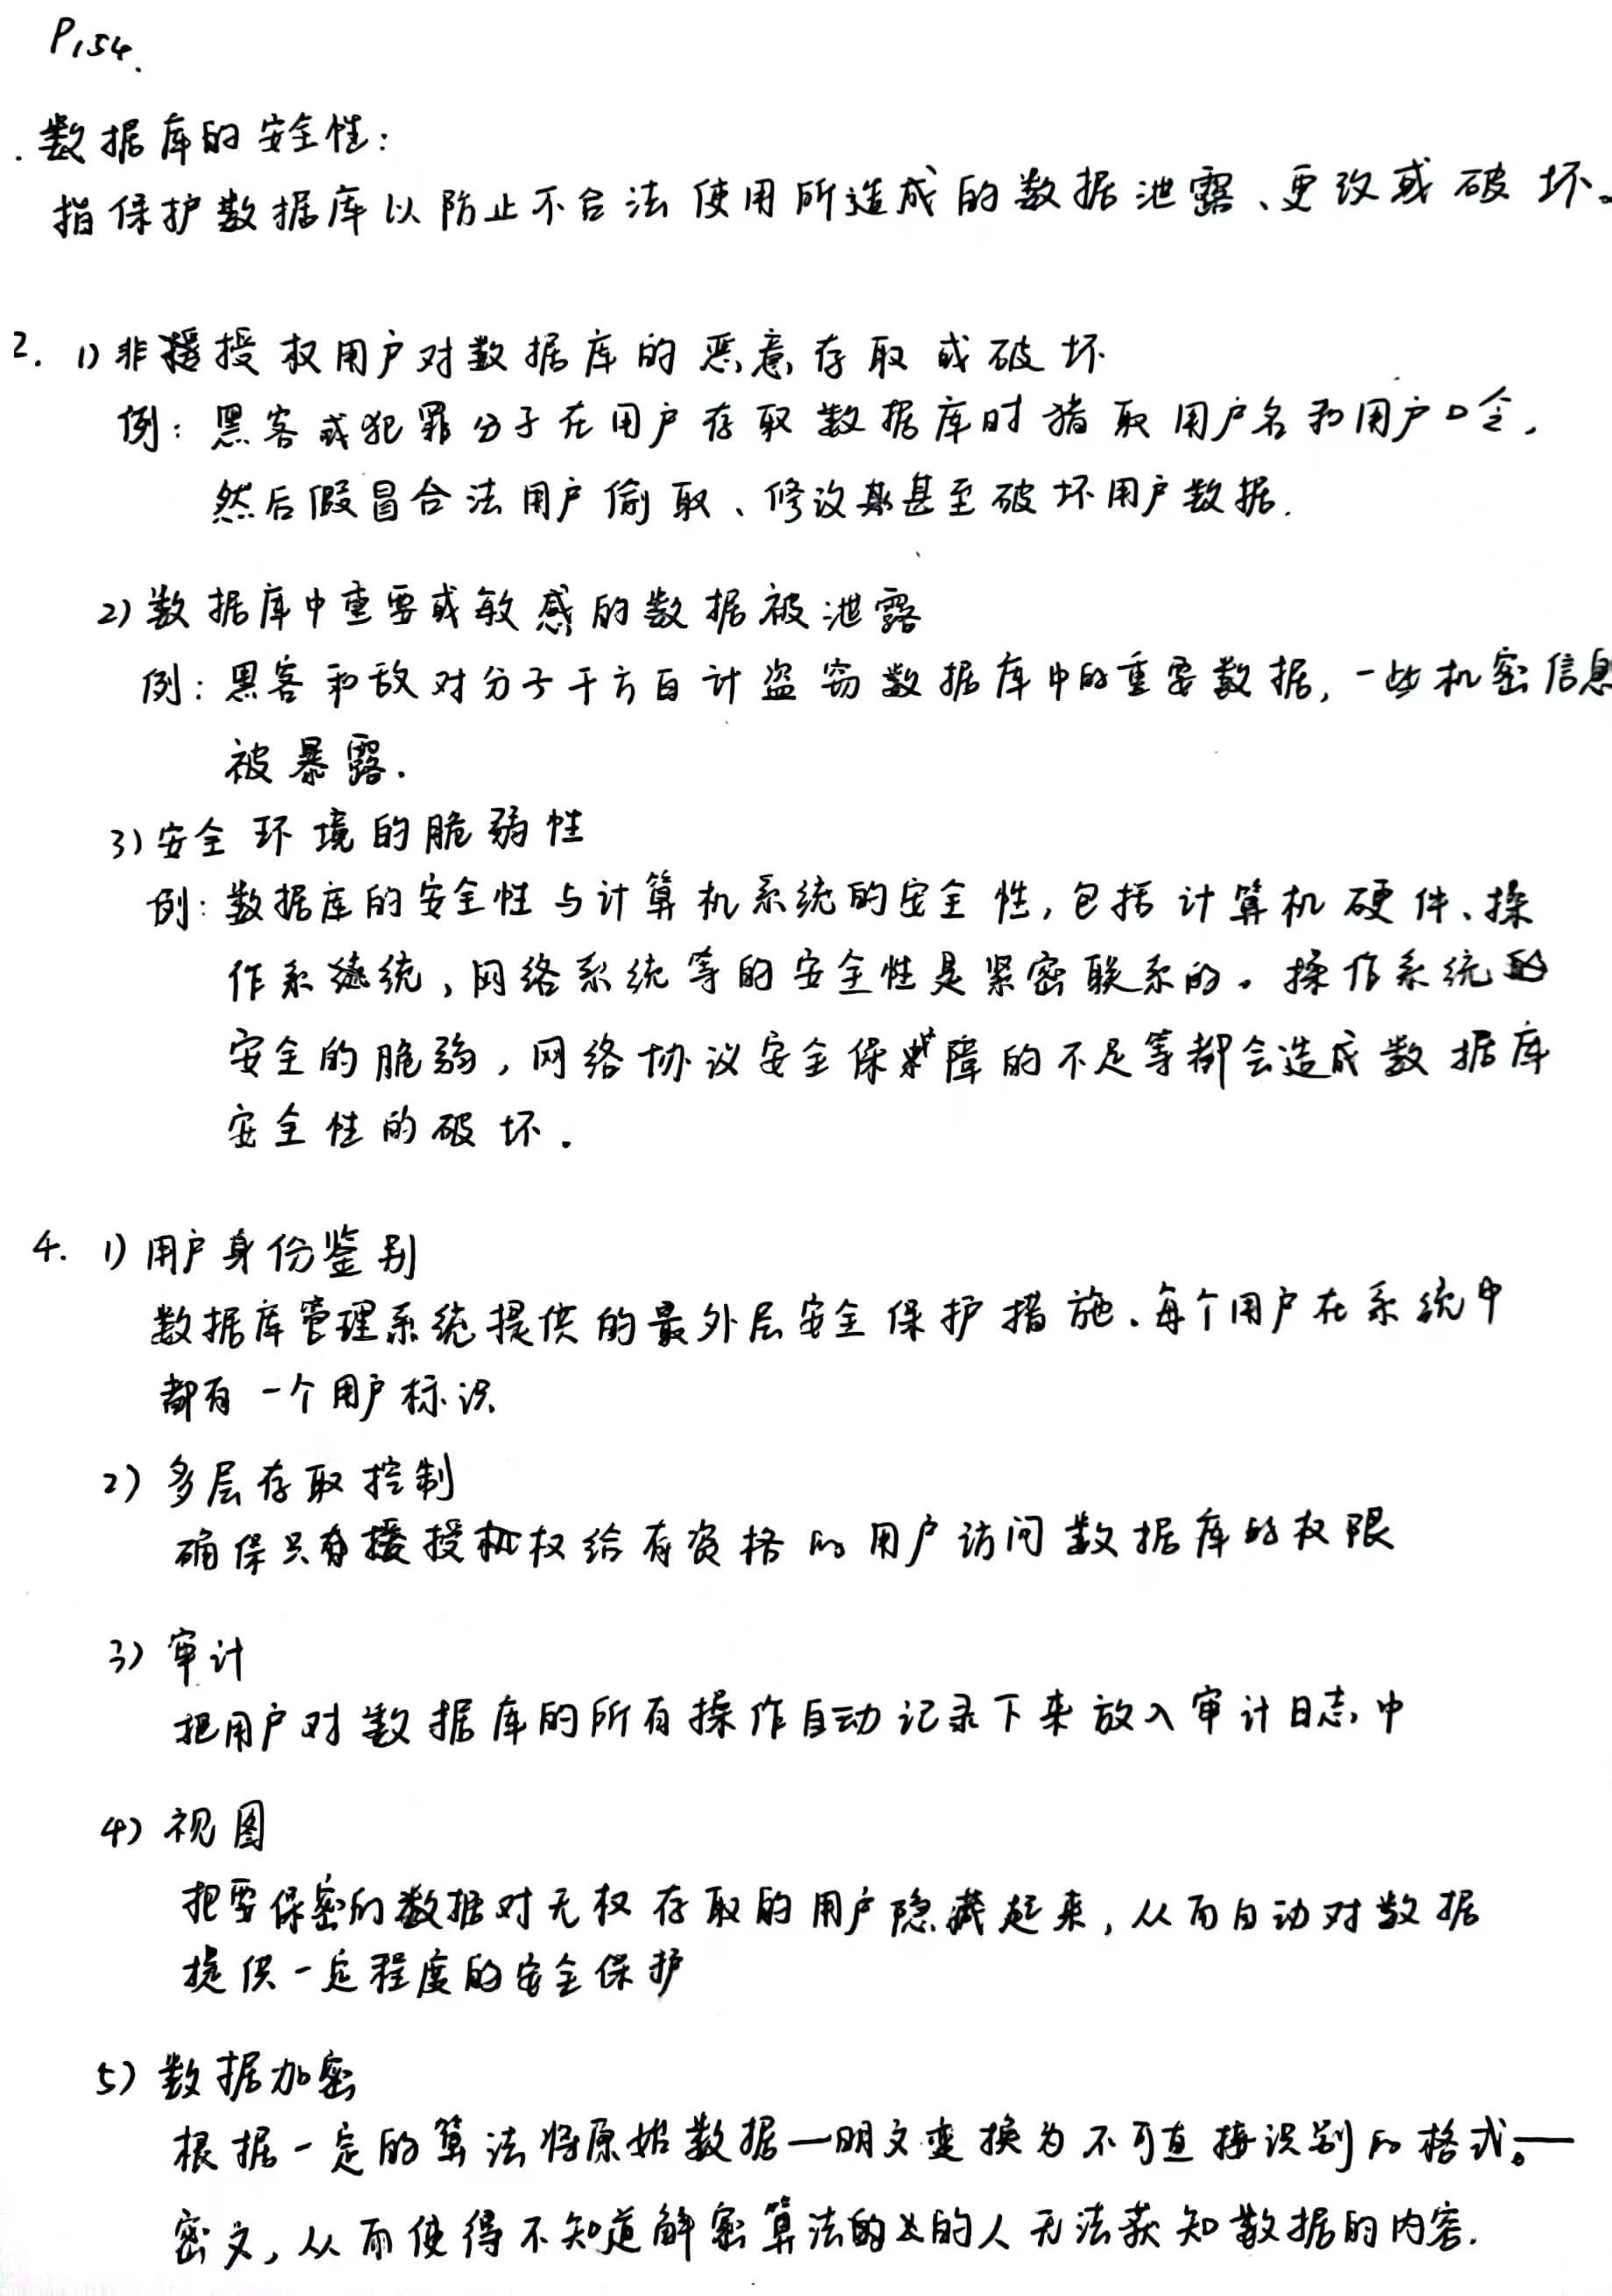 P154.
. 数据库的安全性:
指保护数据库以防止不合法使用所造成的数据泄露、更改或破坏。
2. 1) 非授权用户对数据库的恶意存取或破坏
例: 黑客或犯罪分子在用户存取数据库时猎取用户名和用户口令,
然后假冒合法用户偷取、修改甚至破坏用户数据.
2) 数据库中重要或敏感的数据被泄露
例: 黑客和敌对分子千方百计盗窃数据库中的重要数据, 一些机密信息
被暴露.
3) 安全环境的脆弱性
例: 数据库的安全性与计算机系统的安全性, 包括计算机硬件、操
作系统, 网络系统等的安全性是紧密联系的。操作系统
安全的脆弱, 网络协议安全保障的不足等都会造成数据库
安全性的破坏.
4. 1) 用户身份鉴别
数据库管理系统提供的最外层安全保护措施. 每个用户在系统中
都有一个用户标识
2) 多层存取控制
确保只授权给有资格的用户访问数据库的权限
3) 审计
把用户对数据库的所有操作自动记录下来放入审计日志中
4) 视图
把要保密的数据对无权存取的用户隐藏起来, 从而自动对数据
提供一定程度的安全保护
5) 数据加密
根据一定的算法将原始数据—明文变换为不可直接识别的格式。—
密文, 从而使得不知道解密算法的人无法获知数据的内容.